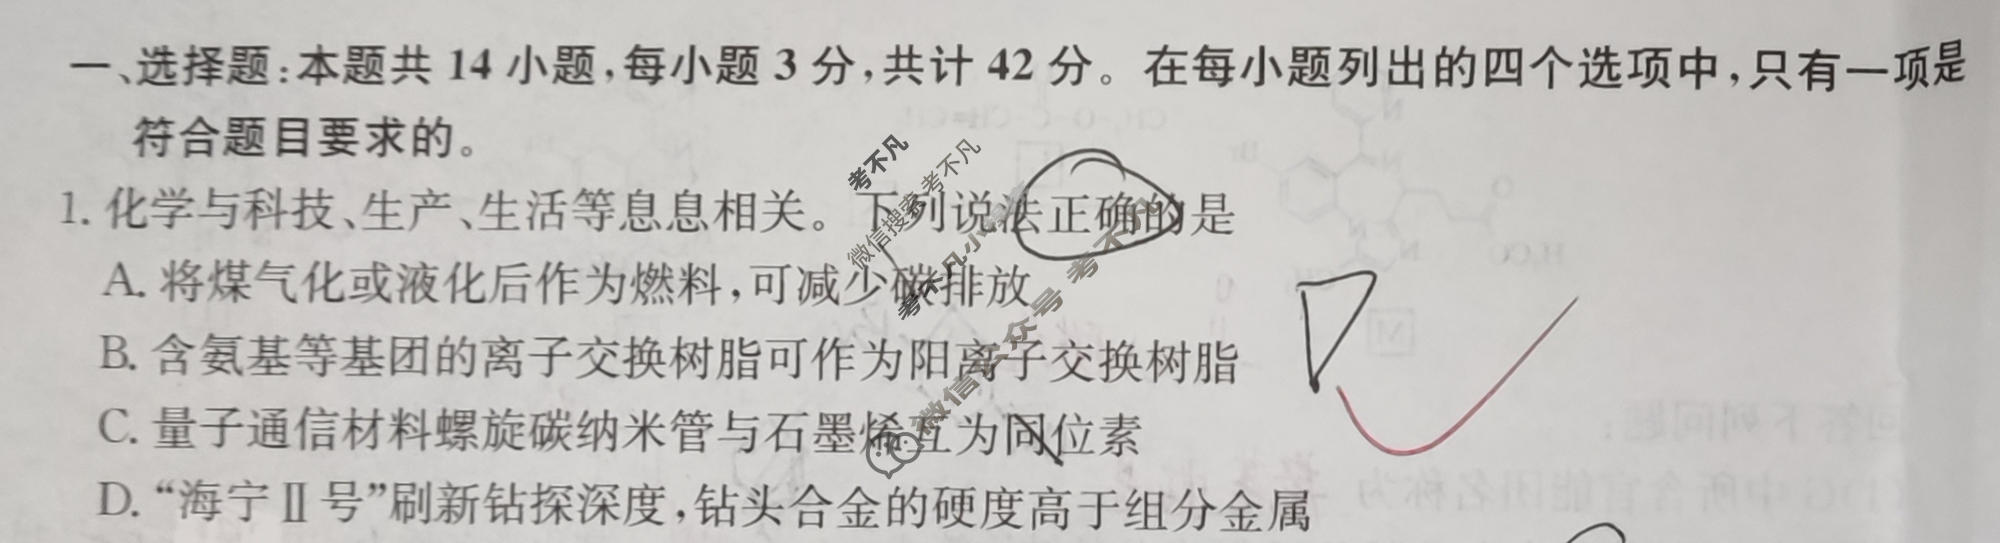 一、选择题:本题共 14 小题,每小题 3 分,共计 42 分。在每小题列出的四个选项中,只有一项是
符合题目要求的。
1. 化学与科技、生产、生活等息息相关。下列说法正确的是
A. 将煤气化或液化后作为燃料,可减少碳排放
B. 含氨基等基团的离子交换树脂可作为阳离子交换树脂
C. 量子通信材料螺旋碳纳米管与石墨烯互为同位素
D. “海宁Ⅱ号”刷新钻探深度,钻头合金的硬度高于组分金属
考不凡
微信搜索 考不凡
考不凡
微信公众号 考不凡